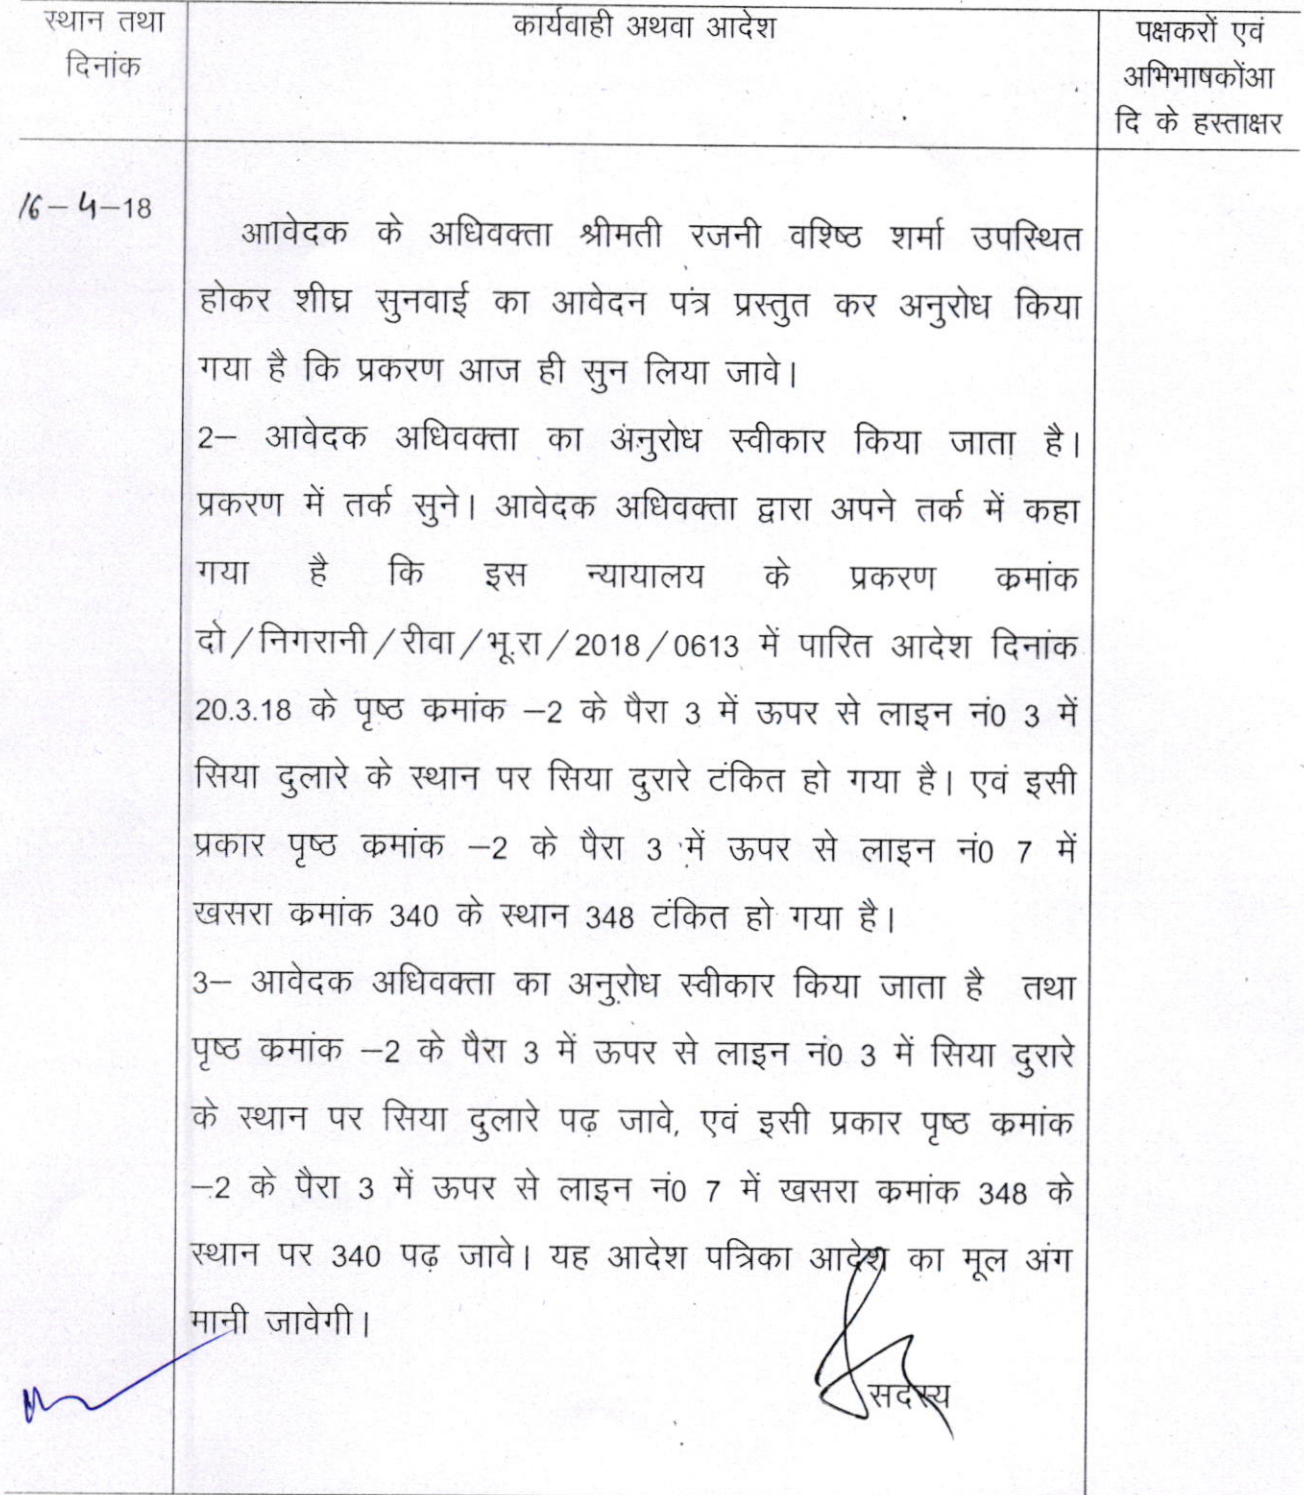 स्थान तथा
दिनांक
कार्यवाही अथवा आदेश
पक्षकरों एवं
अभिभाषकोंआ
दि के हस्ताक्षर
16-4-18
आावेदक के अधिवक्ता श्रीमती रजनी वश्ष्ठि शर्मा उपस्थित
होकर शीघ्र सुनवाई का आवेदन पत्र प्रस्तुत कर अनुरोध किया
गया है कि प्रकरण आज ही सुन लिया जावे।
2– आवेदक अधिवक्ता का अनुरोध स्वीकार किया जाता है।
प्रकरण में तर्क सुने। आवेदक अधिवक्ता द्वारा अपने तर्क में कहा
गया है कि इस न्यायालय के प्रकरण कमांक
दो/निगरानी/रीवा/भू.रा/2018/0613 में पारित आदेश दिनांक
20.3.18 के पृष्ठ कमांक –2 के पैरा 3 में ऊपर से लाइन नं0 3 में
सिया दुलारे के स्थान पर सिया दुरारे टंकित हो गया है। एवं इसी
प्रकार पृष्ठ कमांक –2 के पैरा 3 में ऊपर से लाइन नं0 7 में
खसरा कमांक 340 के स्थान 348 टंकित हो गया है।
3– आवेदक अधिवक्ता का अनुरोध स्वीकार किया जाता है तथा
पृष्ठ कमांक –2 के पैरा 3 में ऊपर से लाइन नं0 3 में सिया दुरारे
के स्थान पर सिया दुलारे पढ़ जावे, एवं इसी प्रकार पृष्ठ कमांक
–2 के पैरा 3 में ऊपर से लाइन नं0 7 में खसरा कमांक 348 के
स्थान पर 340 पढ़ जावे। यह आदेश पत्रिका आदेश का मूल अंग
मानी जावेगी।
सदस्य